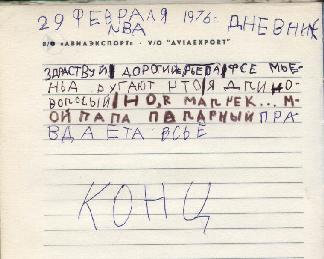 29 ФЕВРАЛЯ 1976г. ДНЕВНИК
NВА
В/О «АВИАЭКСПОРТ» · V/O "AVIAEXPORT"
ЗДРАСТВУЙ ДОРОГИЙ ФСЕ МЬЕ-
НЬА РУГАЮТ ЧТО Я ДЛИНО-
ВОЛОСЫЙ НО Я МАЛНЕК... М-
ОЙ ПАПА ПАПАРНЫЙ ПРА-
ВДА ЕТА ВСЬЁ
КОНЦ